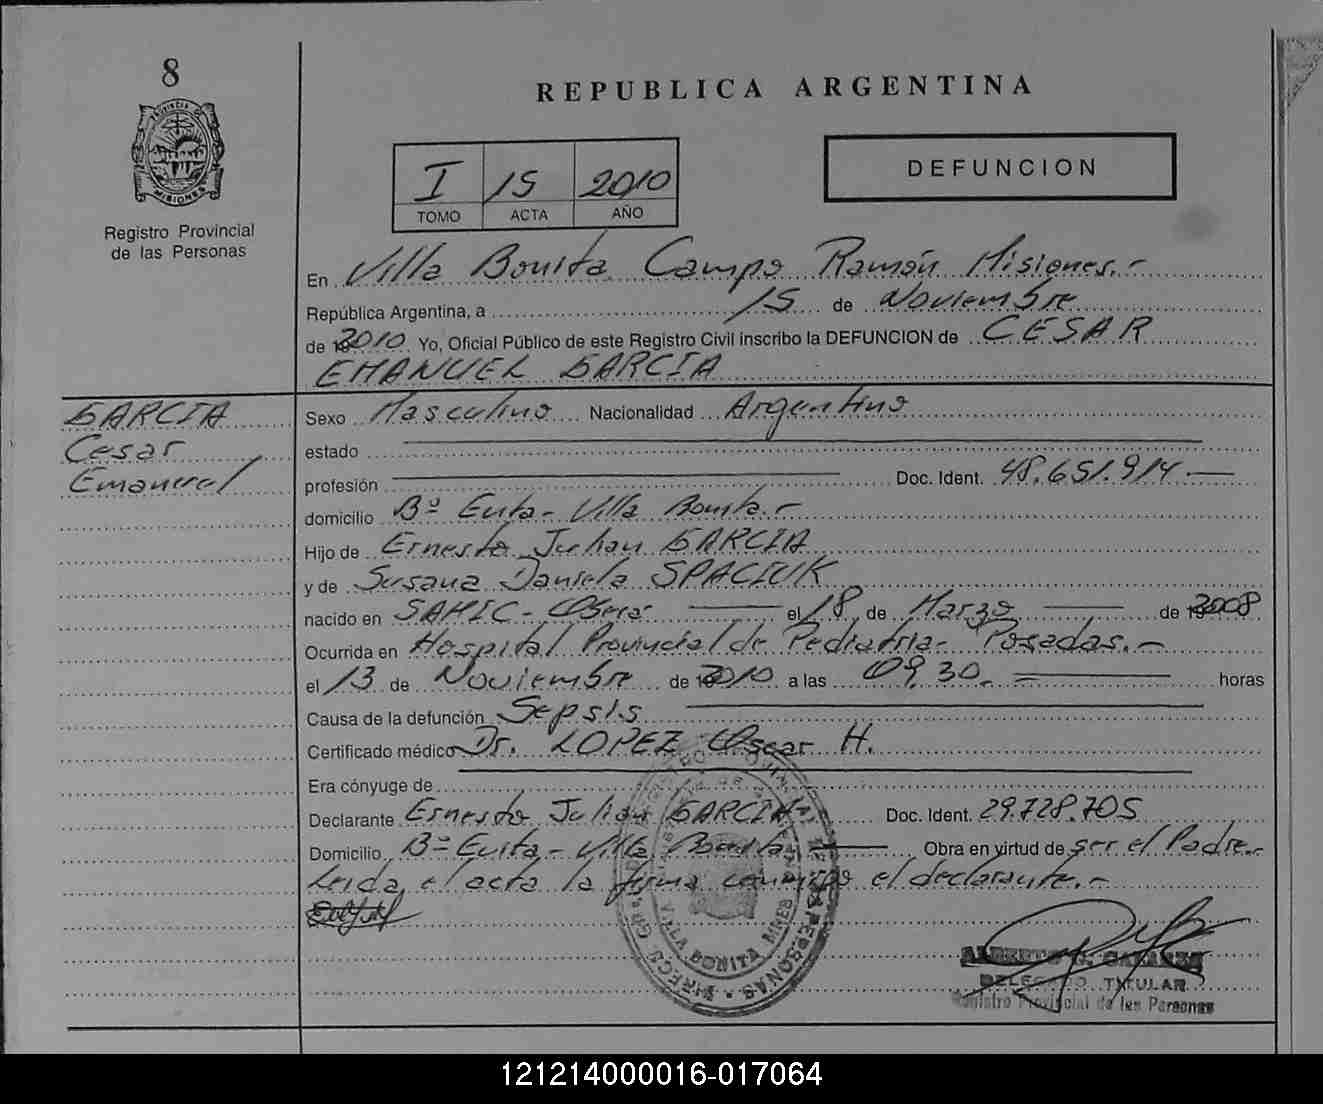 8
REPUBLICA ARGENTINA
PROVINCIA DE MISIONES
Registro Provincial
de las Personas
I 15 2010
TOMO ACTA AÑO
DEFUNCION
En Villa Bonita Campo Ramón Misiones.-
República Argentina, a 15 de Noviembre
de 2010 Yo, Oficial Público de este Registro Civil inscribo la DEFUNCION de CESAR
EMANUEL GARCIA
GARCIA
Cesar
Emanuel
Sexo Masculino Nacionalidad Argentino
estado
profesión Doc. Ident. 48.651.914
domicilio Bº Evita - Villa Bonita.-
Hijo de Ernesto Julian GARCIA
y de Susana Daniela SPACIUK
nacido en SAMIC - Oberá el 18 de Marzo de 2008
Ocurrida en Hospital Provincial de Pediatria - Posadas.-
el 13 de Noviembre de 2010 a las 09,30 horas
Causa de la defunción Sepsis
Certificado médico Dr. LOPEZ Oscar H.
Era cónyuge de
Declarante Ernesto Julian GARCIA Doc. Ident. 29.728.705
Domicilio Bº Evita - Villa Bonita Obra en virtud de ser el Padre.-
Leida el acta la firma conmigo el declarante.-
VILLA BONITA MNES
PERSONAS
DELEGADO TITULAR
Registro Provincial de las Personas
121214000016-017064